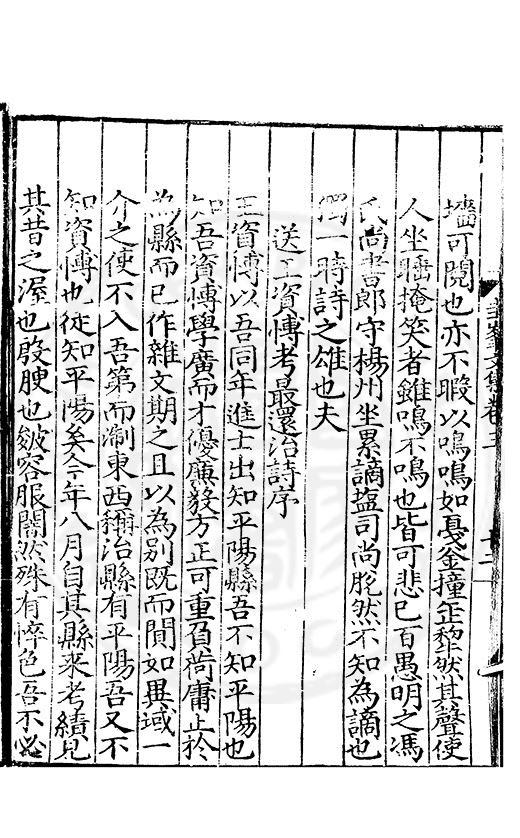 墻可閱也亦不暇以鳴鳴如戞釜撞缶犂然其聲使
人坐睡掩笑者雖鳴不鳴也皆可悲已百愚明之馮
氏尚書郎守楊州坐累謫塩司尚脫然不知為謫也
獨一時詩之雄也夫
送王資愽考最還治詩序
王資愽以吾同年進士出知平陽縣吾不知平陽也
知吾資愽學廣而才優廉毅方正可重負荷庸止於
為縣而已作雜文期之且以為别既而間如異域一
介之使不入吾第而淛東西稱治縣有平陽吾又不
知資愽也從知平陽矣今年八月自其縣来考績見
其昔之渥也殷腴也皴容服闇然殊有悴色吾不必
文集卷三